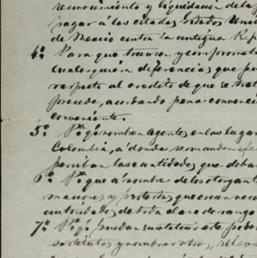 reconocimiento y liquidacion de la
pagar á los citados Estados Unid
de Mexico contra la antigua Rep
4.° Para que transen y comprometan
cualesquiera diferencias que pu
respecto al credito de que se trat
precede, acordando para convenci
conveniente.
5.° P.ª q.e nombren agentes en los lugar
Colombia, a donde se manden
perciban las cantidades que deba
6.° P.ª que á nombre de los otorgant
y protestas que crean nece
autoridades de toda clase de rango
7.° P.ª q.e puedan sustituir este pode
sostitutos y nombrar otros,